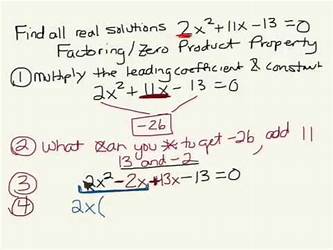 Find all real solutions 2x²+11x-13=0
Factoring/Zero Product Property
① multiply the leading coefficient & constant
2x²+11x-13=0
-26
② What can you * to get -26, add 11
13 and -2
③ 2x²-2x+13x-13=0
④ 2x(